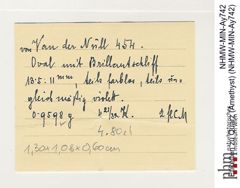 von Van der Nüll 454.
Oval mit Brillantschliff
13.5:11 mm, teils farblos, teils un-
gleichmäßig violett.
0.9598 g 2 fl C M
4.80ct
1,30×1,08×0,60cm
NHMW-MIN-Ay742
(Amethyst) (NHMW-MIN-Ay742)
nhm